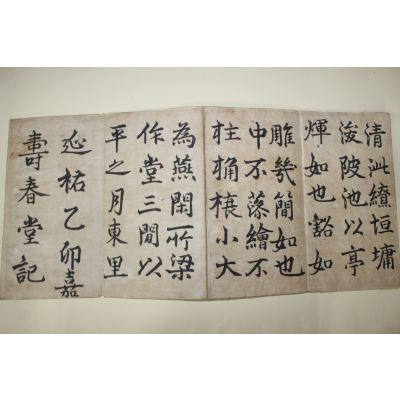 壽春堂記
延祐乙卯嘉
平之月東里
作堂三間以
為燕閑所梁
柱桷榱小大
中不藻繪不
雕幾簡如也
輝如也豁如
浚陂池以亭
清泚繚垣墉